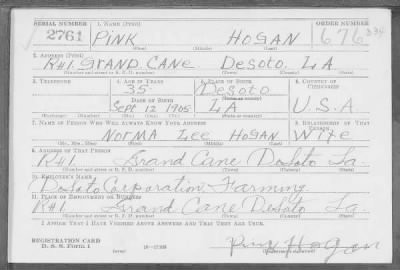 SERIAL NUMBER 1. NAME (Print) ORDER NUMBER
2761 PINK HOGAN 676
(First) (Middle) (Last)
2. ADDRESS (Print)
R#1. GRAND CANE DESOTO. LA
(Number and street or R. F. D. number) (Town) (County) (State)
3. TELEPHONE 4. AGE IN YEARS 5. PLACE OF BIRTH 6. COUNTRY OF CITIZENSHIP
35 DESOTO
(Town or county)
DATE OF BIRTH
SEPT 12 1905 LA U.S.A.
(Mo.) (Day) (Yr.) (State or country)
7. NAME OF PERSON WHO WILL ALWAYS KNOW YOUR ADDRESS 8. RELATIONSHIP OF THAT PERSON
NORMA LEE HOGAN WIFE
(Mr., Mrs., Miss) (First) (Middle) (Last)
9. ADDRESS OF THAT PERSON
R#1. Grand Cane DeSoto La.
(Number and street or R. F. D. number) (Town) (County) (State)
10. EMPLOYER'S NAME
DeSoto Corporation Farming
11. PLACE OF EMPLOYMENT OR BUSINESS
R#1. Grand Cane DeSoto La.
(Number and street or R. F. D. number) (Town) (County) (State)
I AFFIRM THAT I HAVE VERIFIED ABOVE ANSWERS AND THAT THEY ARE TRUE.
REGISTRATION CARD
D. S. S. Form 1 (over) 16-17105 Pink Hogan